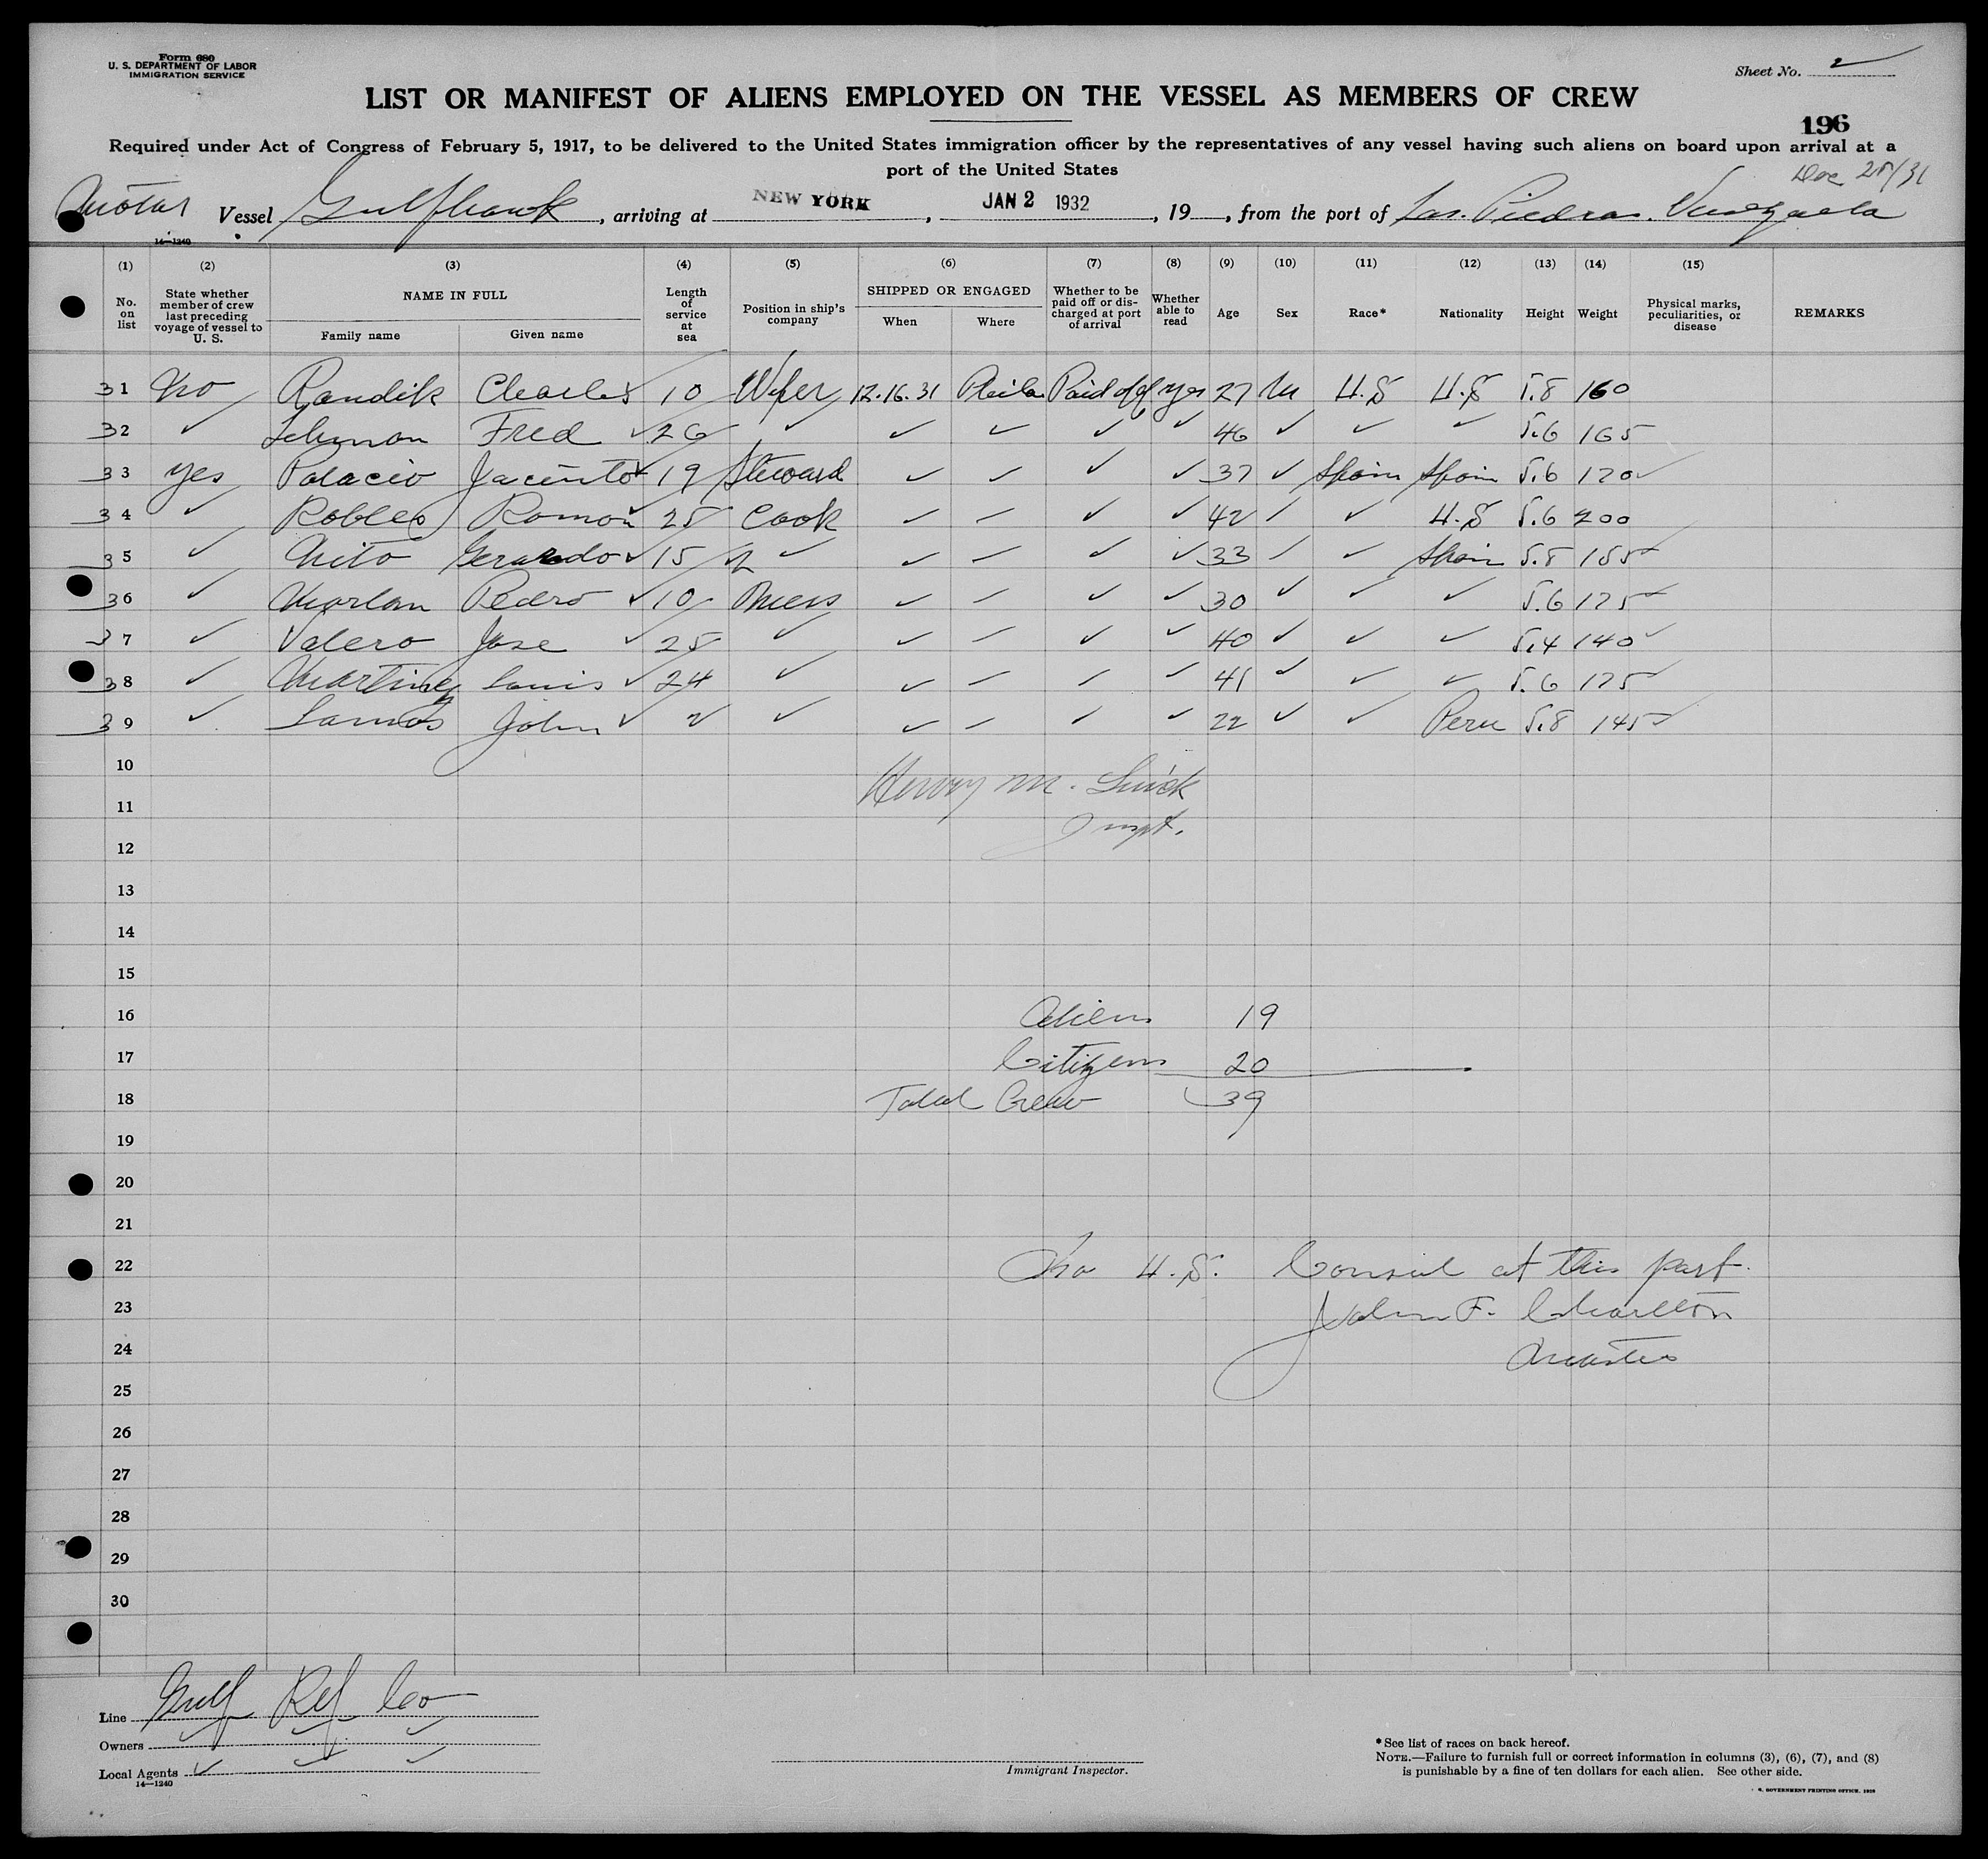 Form 680
U. S. DEPARTMENT OF LABOR
IMMIGRATION SERVICE
Sheet No. 2
LIST OR MANIFEST OF ALIENS EMPLOYED ON THE VESSEL AS MEMBERS OF CREW
196
Required under Act of Congress of February 5, 1917, to be delivered to the United States immigration officer by the representatives of any vessel having such aliens on board upon arrival at a
port of the United States
Dec 28/31
Vessel Gulfhawk, arriving at NEW YORK, JAN 2 1932, 19, from the port of Las Piedras. Venezuela
14—1240
(1) (2) (3) (4) (5) (6) (7) (8) (9) (10) (11) (12) (13) (14) (15)
No. on list State whether member of crew last preceding voyage of vessel to U. S. NAME IN FULL Family name Given name Length of service at sea Position in ship's company SHIPPED OR ENGAGED When Where Whether to be paid off or discharged at port of arrival Whether able to read Age Sex Race* Nationality Height Weight Physical marks, peculiarities, or disease REMARKS
31 No Randik Charles ✓ 10 Wiper 12.16.31 Phila Paid off yes 27 M U.S U.S 5.8 160
32 ✓ Lehman Fred ✓ 26 ✓ ✓ ✓ ✓ ✓ 46 ✓ ✓ ✓ 5.6 165
33 yes Palacio Jacinto ✓ 19 Steward ✓ ✓ ✓ ✓ 37 ✓ Spain Spain 5.6 170 ✓
34 ✓ Robles Ramon ✓ 25 Cook ✓ ✓ ✓ ✓ 42 ✓ ✓ U.S 5.6 200
35 ✓ Nito Gerardo ✓ 15 2 ✓ ✓ ✓ ✓ ✓ 33 ✓ ✓ Spain 5.8 155 ✓
36 ✓ Marlan Pedro ✓ 10 Mess ✓ ✓ ✓ ✓ 30 ✓ ✓ ✓ 5.6 175 ✓
37 ✓ Valero Jose ✓ 25 ✓ ✓ ✓ ✓ ✓ 40 ✓ ✓ ✓ 5.4 140 ✓
38 ✓ Martinez Louis ✓ 24 ✓ ✓ ✓ ✓ ✓ 41 ✓ ✓ ✓ 5.6 175 ✓
39 ✓ Lamas John ✓ 2 ✓ ✓ ✓ ✓ ✓ 22 ✓ ✓ Peru 5.8 145 ✓
10
11 M.
Inspt.
12
13
14
15
16 Aliens 19
17 Citizens 20
18 Total Crew 39
19
20
21
22 No U.S. Consul at this port.
23 John F. Charlton
24 Master
25
26
27
28
29
30
Line Gulf Ref Co
Owners ✓ ✓ ✓
Local Agents ✓ ✓ ✓
14—1240
Immigrant Inspector.
* See list of races on back hereof.
NOTE.—Failure to furnish full or correct information in columns (3), (6), (7), and (8)
is punishable by a fine of ten dollars for each alien. See other side.